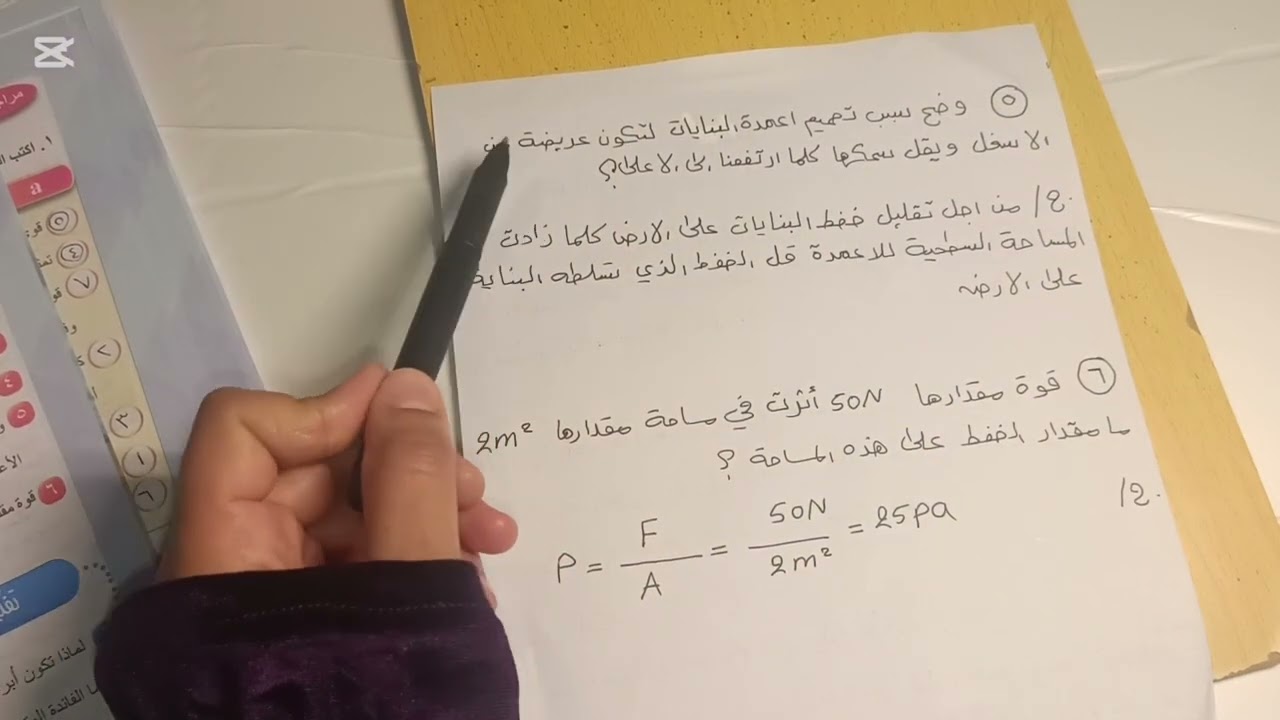 ٥ وضح سبب تصميم اعمدة البنايات لتكون عريضة من
الاسفل ويقل سمكها كلما ارتفعنا الى الاعلى؟
ج/ من اجل تقليل ضغط البنايات على الارض كلما زادت
المساحة السطحية للاعمدة قل الضغط الذي تسلطه البناية
على الارض
٦ قوة مقدارها 50N أثرت في مساحة مقدارها 2m²
ما مقدار الضغط على هذه المساحة ؟
ج/
P = F/A = 50N/2m² = 25Pa
١. اكتب
a
٥ قوة
٤
٧
٢
٣
١
٦
٤
٥
٦ قوة
لماذا تكون
الفائدة